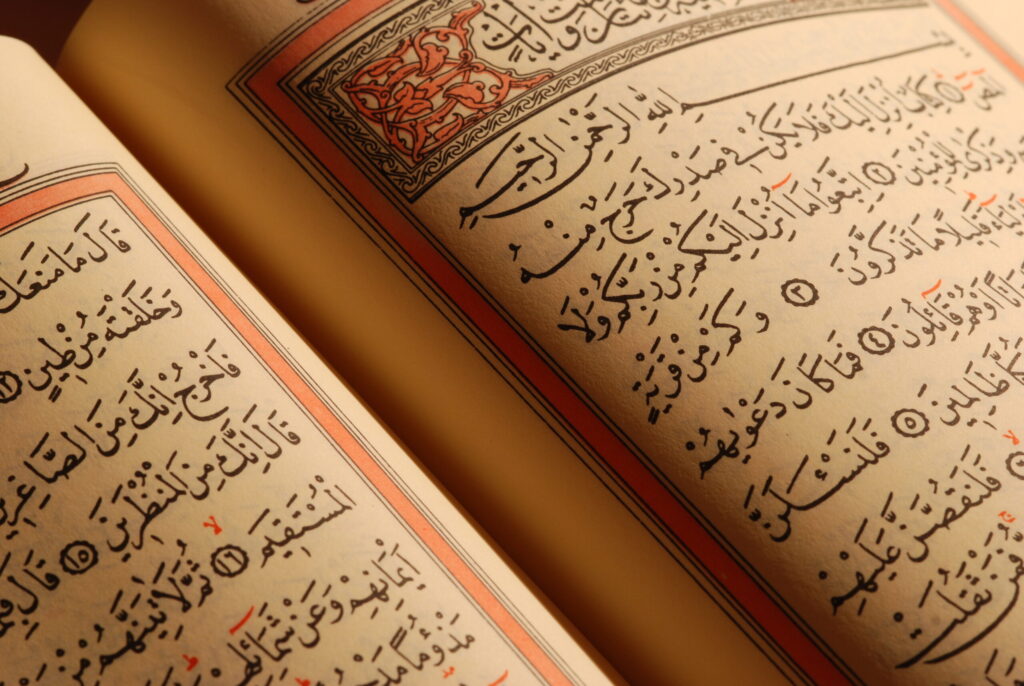 بِسْمِ اللّٰهِ الرَّحْمٰنِ الرَّحِيمِ
الٓمٓصٓ ١ كِتَابٌ اُنْزِلَ اِلَيْكَ فَلَا يَكُنْ فِي صَدْرِكَ حَرَجٌ مِنْهُ
وَذِكْرٰى لِلْمُؤْمِنِينَ ٢ اِتَّبِعُوا مَٓا اُنْزِلَ اِلَيْكُمْ مِنْ رَبِّكُمْ وَلَا
قَلِيلًا مَا تَذَكَّرُونَ ٣ وَكَمْ مِنْ قَرْيَةٍ
اَوْ هُمْ قَٓائِلُونَ ٤ فَمَا كَانَ دَعْوٰيهُمْ
ظَالِمِينَ ٥ فَلَنَسْـَٔلَنَّ
فَلَنَقُصَّنَّ عَلَيْهِمْ
ثَقُلَتْ
قَالَ مَا مَنَعَكَ
وَخَلَقْتَهُ مِنْ طِينٍ ١٢
فَاخْرُجْ اِنَّكَ مِنَ الصَّاغِرِينَ
قَالَ اِنَّكَ مِنَ الْمُنْظَرِينَ ١٥ قَالَ
الْمُسْتَقِيمَ ١٦ ثُمَّ لَاٰتِيَنَّهُمْ مِنْ
اَيْمَانِهِمْ وَعَنْ شَمَٓائِلِهِمْ
مَذْؤُمًا